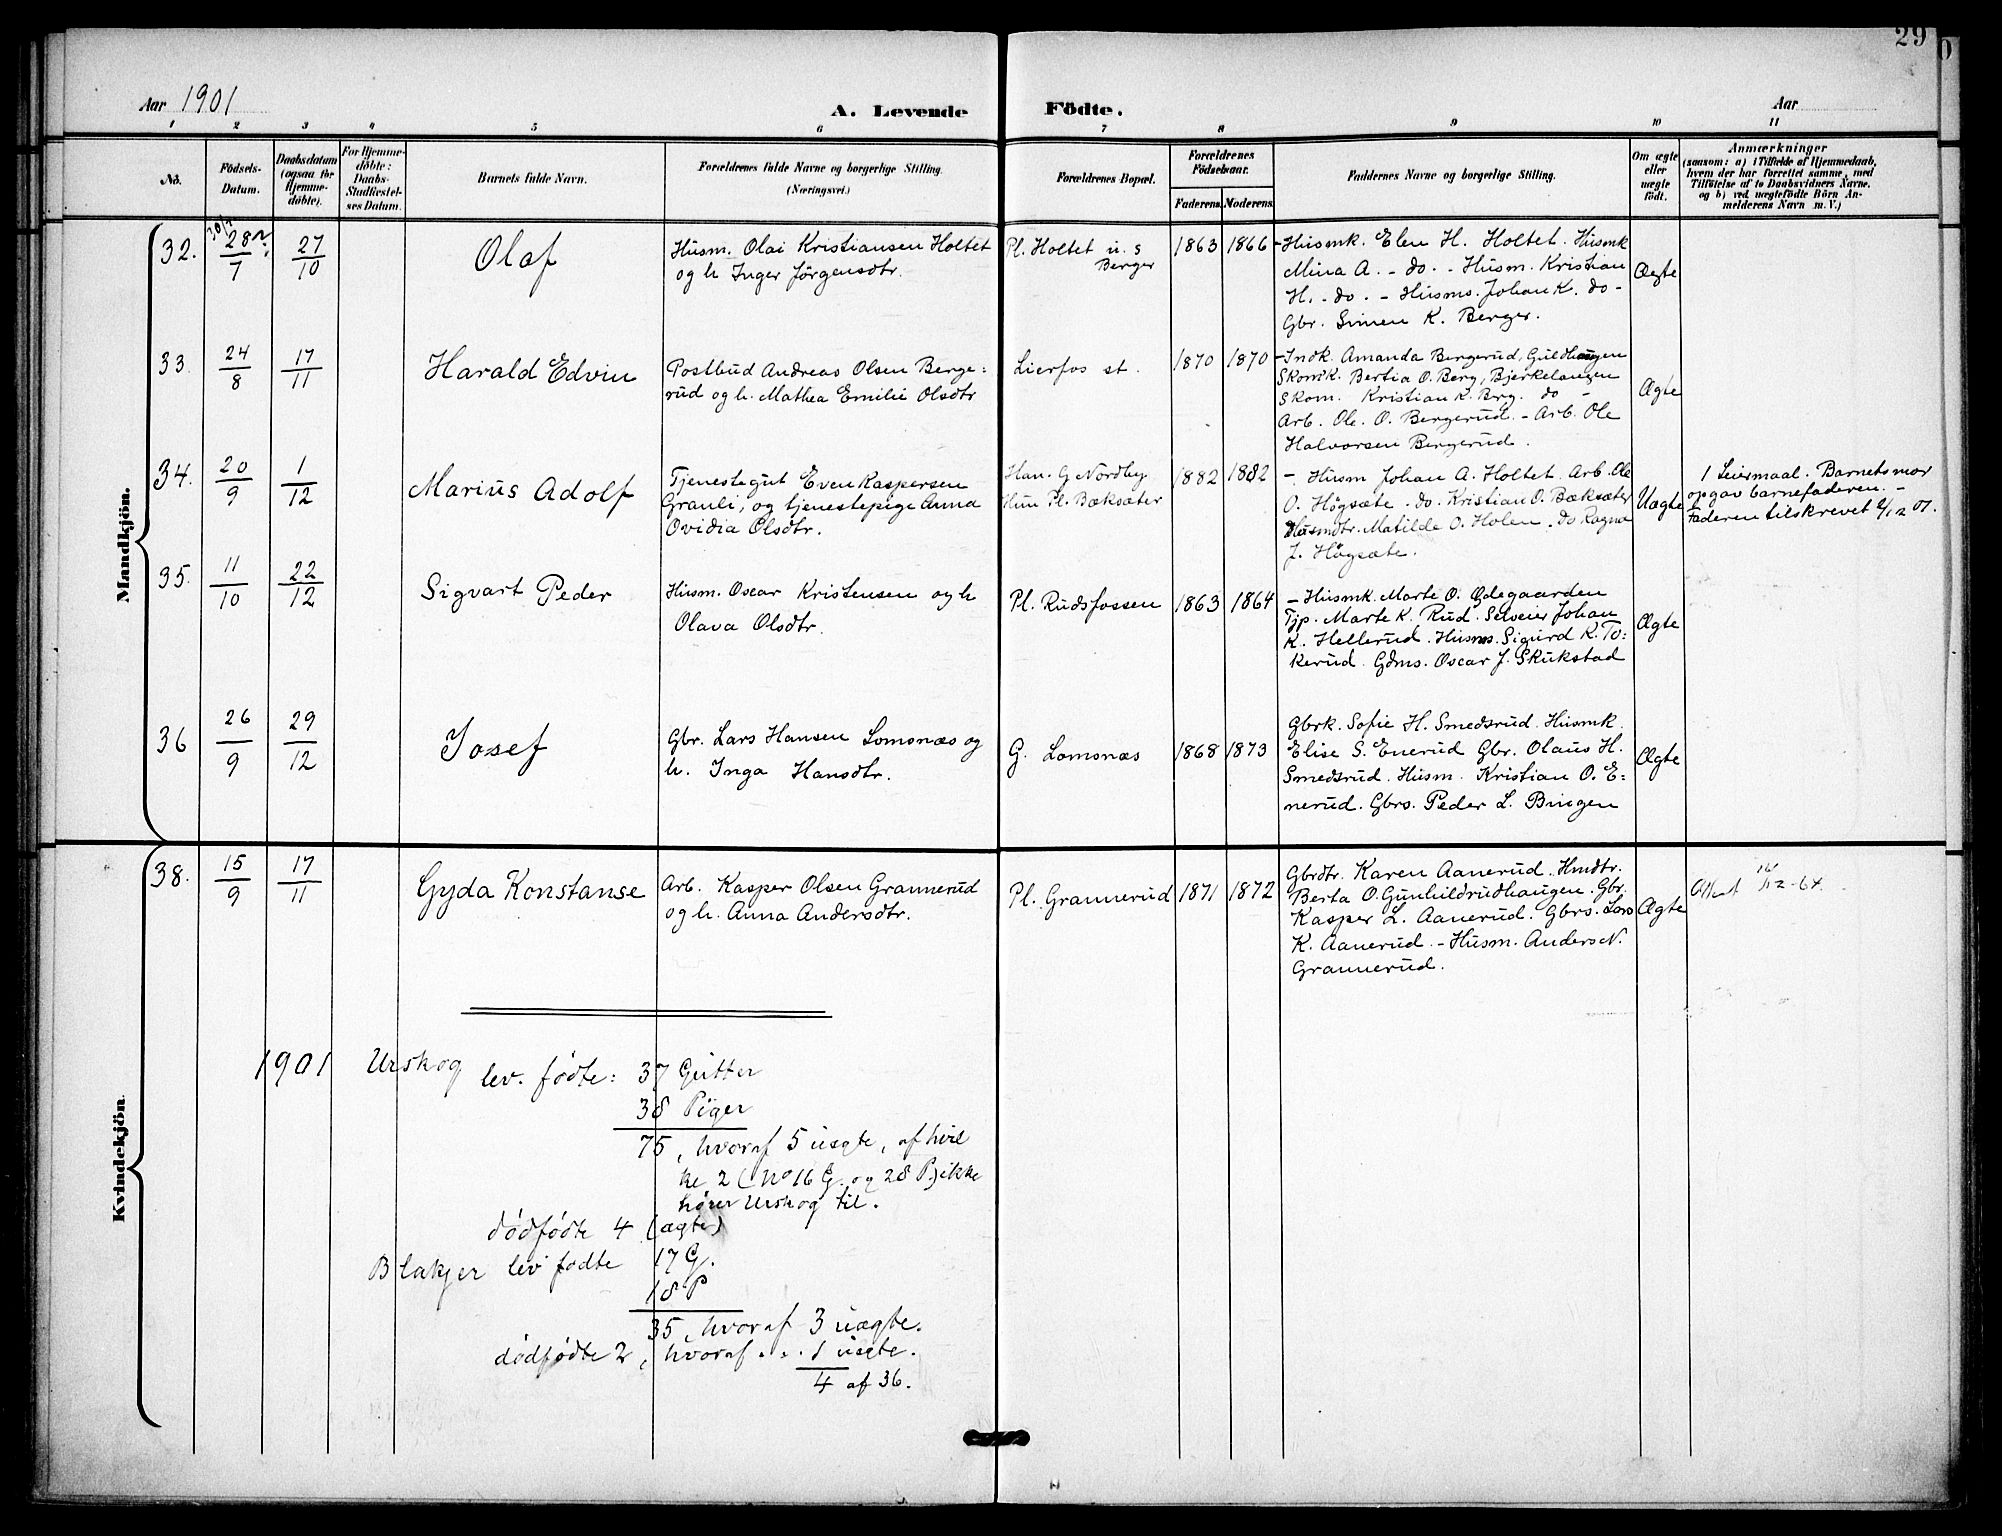 29
Aar 1901
A. Levende Födte.
Aar
1 2 3 4 5 6 7 8 9 10 11
No.
Födsels-
Datum.
Daabsdatum
(ogsaa for
Hjemme-
döbte).
For Hjemme-
döbte:
Daabs-
Stadfæstel-
ses Datum.
Barnets fulde Navn.
Forældrenes fulde Navne og borgerlige Stilling.
(Næringsvei.)
Forældrenes Bopæl.
Forældrenes
Födselsaar.
Faderens. Moderens.
Faddernes Navne og borgerlige Stilling.
Om ægte
eller
uægte
födt.
Anmærkninger
(saasom: a) i Tilfælde af Hjemmedaab,
hvem der har forrettet samme, med
Tilföielse af to Daabsvidners Navne,
og b) ved uægtefödte Börn An-
melderens Navn m. V.)
Mandkjön.
32.
30/7
28/7 ?
27/10
Olaf
Husm. Olai Kristiansen Holtet
og h. Inger Jørgensdtr.
Pl. Holtet u. s
Berger
1863 1866
- Husmk. Elen H. Holtet. Husmk
Mina A. - do. - Husm. Kristian
H. - do. - Husms. Johan K. do -
Gbr. Simen K. Berger.
Ægte
33.
24/8
17/11
Harald Edvin
Postbud Andreas Olsen Berge=
rud og h. Mathea Emilie Olsdtr
Lierfos st.
1870 1870
- Indk. Amanda Bergerud, Guldhaugen
Skomk. Bertia O. Berg, Bjerkelangen
Skom. Kristian K. Berg. do -
Arb. Ole O. Bergerud. - Arb. Ole
Halvorsen Bergerud.
Ægte
34.
20/9
1/12
Marius Adolf
Tjenestegut Even Kaspersen
Granli, og tjenestepige Anna
Ovidia Olsdtr.
Han. G Nordby
Hun Pl. Bæksæter
1882 1882
- Husm Johan A. Holtet. Arb. Ole
O. Høgsæte. do. Kristian O. Bæksæter
Husmdtr. Matilde O. Holen. do Ragna
J. Høgsæte.
Uægte
1 Leiermaal. Barnets mor
opgav barnefaderen. -
Faderen tilskrevet 2/12 01.
35.
11/10
22/12
Sigvart Peder
Husm. Oscar Kristensen og h
Olava Olsdtr.
Pl. Rudsfossen
1863 1864
- Husmk. Marte O. Ødegaarden
Tjp. Marte K. Rud. Selveier Johan
K. Hellerud. Husms. Sigurd K. To=
kerud. Gdms. Oscar J. Skukstad
Ægte
36
26/9
29/12
Josef
Gbr. Lars Hansen Lomsnæs og
h. Inga Hansdtr.
G. Lomsnæs
1868 1873
Gbrk. Sofie H. Smedsrud. Husmk.
Elise S. Enerud Gbr. Olaus H.
Smedsrud. Husm. Kristian O. E=
nerud. Gbrs. Peder L. Bingen
Ægte
Kvindekjön.
38.
15/9
17/11
Gyda Konstanse
Arb. Kasper Olsen Grannerud
og h. Anna Andersdtr.
Pl. Grannerud
1871 1872
Gbrdtr. Karen Aanerud. Hmdtr.
Berta O. Gunhildrudhaugen. Gbr.
Kasper L. Aanerud. Gbrs. Lars
K. Aanerud. - Husm. Anders N.
Grannerud.
Ægte
Attest
1901 Urskog lev. fødte: 37 Gutter
38 Piger
75, hvoraf 5 uægte, af hvil
ke 2 (No 16 G. og 28 P.) ikke
hører Urskog til.
dødfødte 4 (ægte)
Blakjer lev fødte 17 G.
18 P
35, hvoraf 3 uægte.
dødfødte 2, hvoraf . . . 1 uægte.
4 af 36.